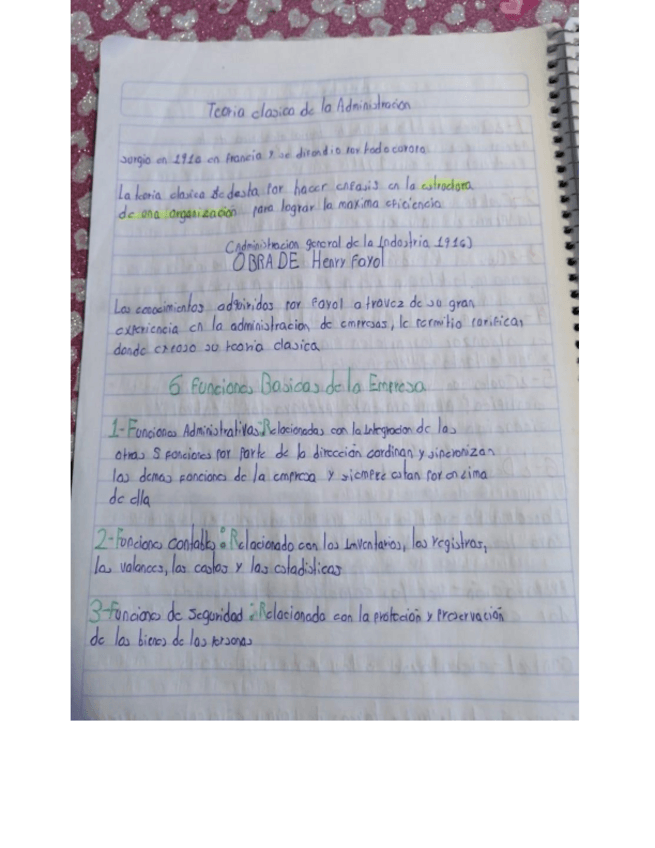 Teoria clasica de la Administracion
surgio en 1916 en francia y se difondio por toda europa
La teoria clasica se desta por hacer enfasis en la estroctora
de ona organización para lograr la maxima eficiencia
(Administracion general de la Indostria 1916)
OBRA DE Henry Fayol
Los conocimientos adquiridos por Fayol a travez de so gran
experiencia en la administracion de empresas, le permitio
donde expaso so teoria clasica
6 Funciones Basicas de la Empresa
1-Funciones Administrativas: Relacionadas con la integracion de las
otras 5 funciones por parte de la dirección cordinan y sincronizan
las demas funciones de la empresa y siempre estan por encima
de ella
2-Funciones contables: Relacionado con los inventarios, los registros,
los valances, los costos y las estadisticas
3-Funciones de seguridad: Relacionado con la proteción y Preservación
de los bienes de las personas